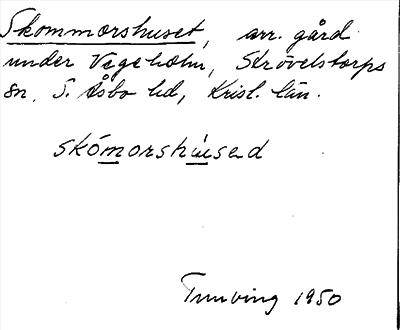 Skommorshuset, arr. gård
under Vegeholm, Strövelstorps
sn. S. Åsbo hd, Krist. län.
skómorshúsed
Tunving 1950